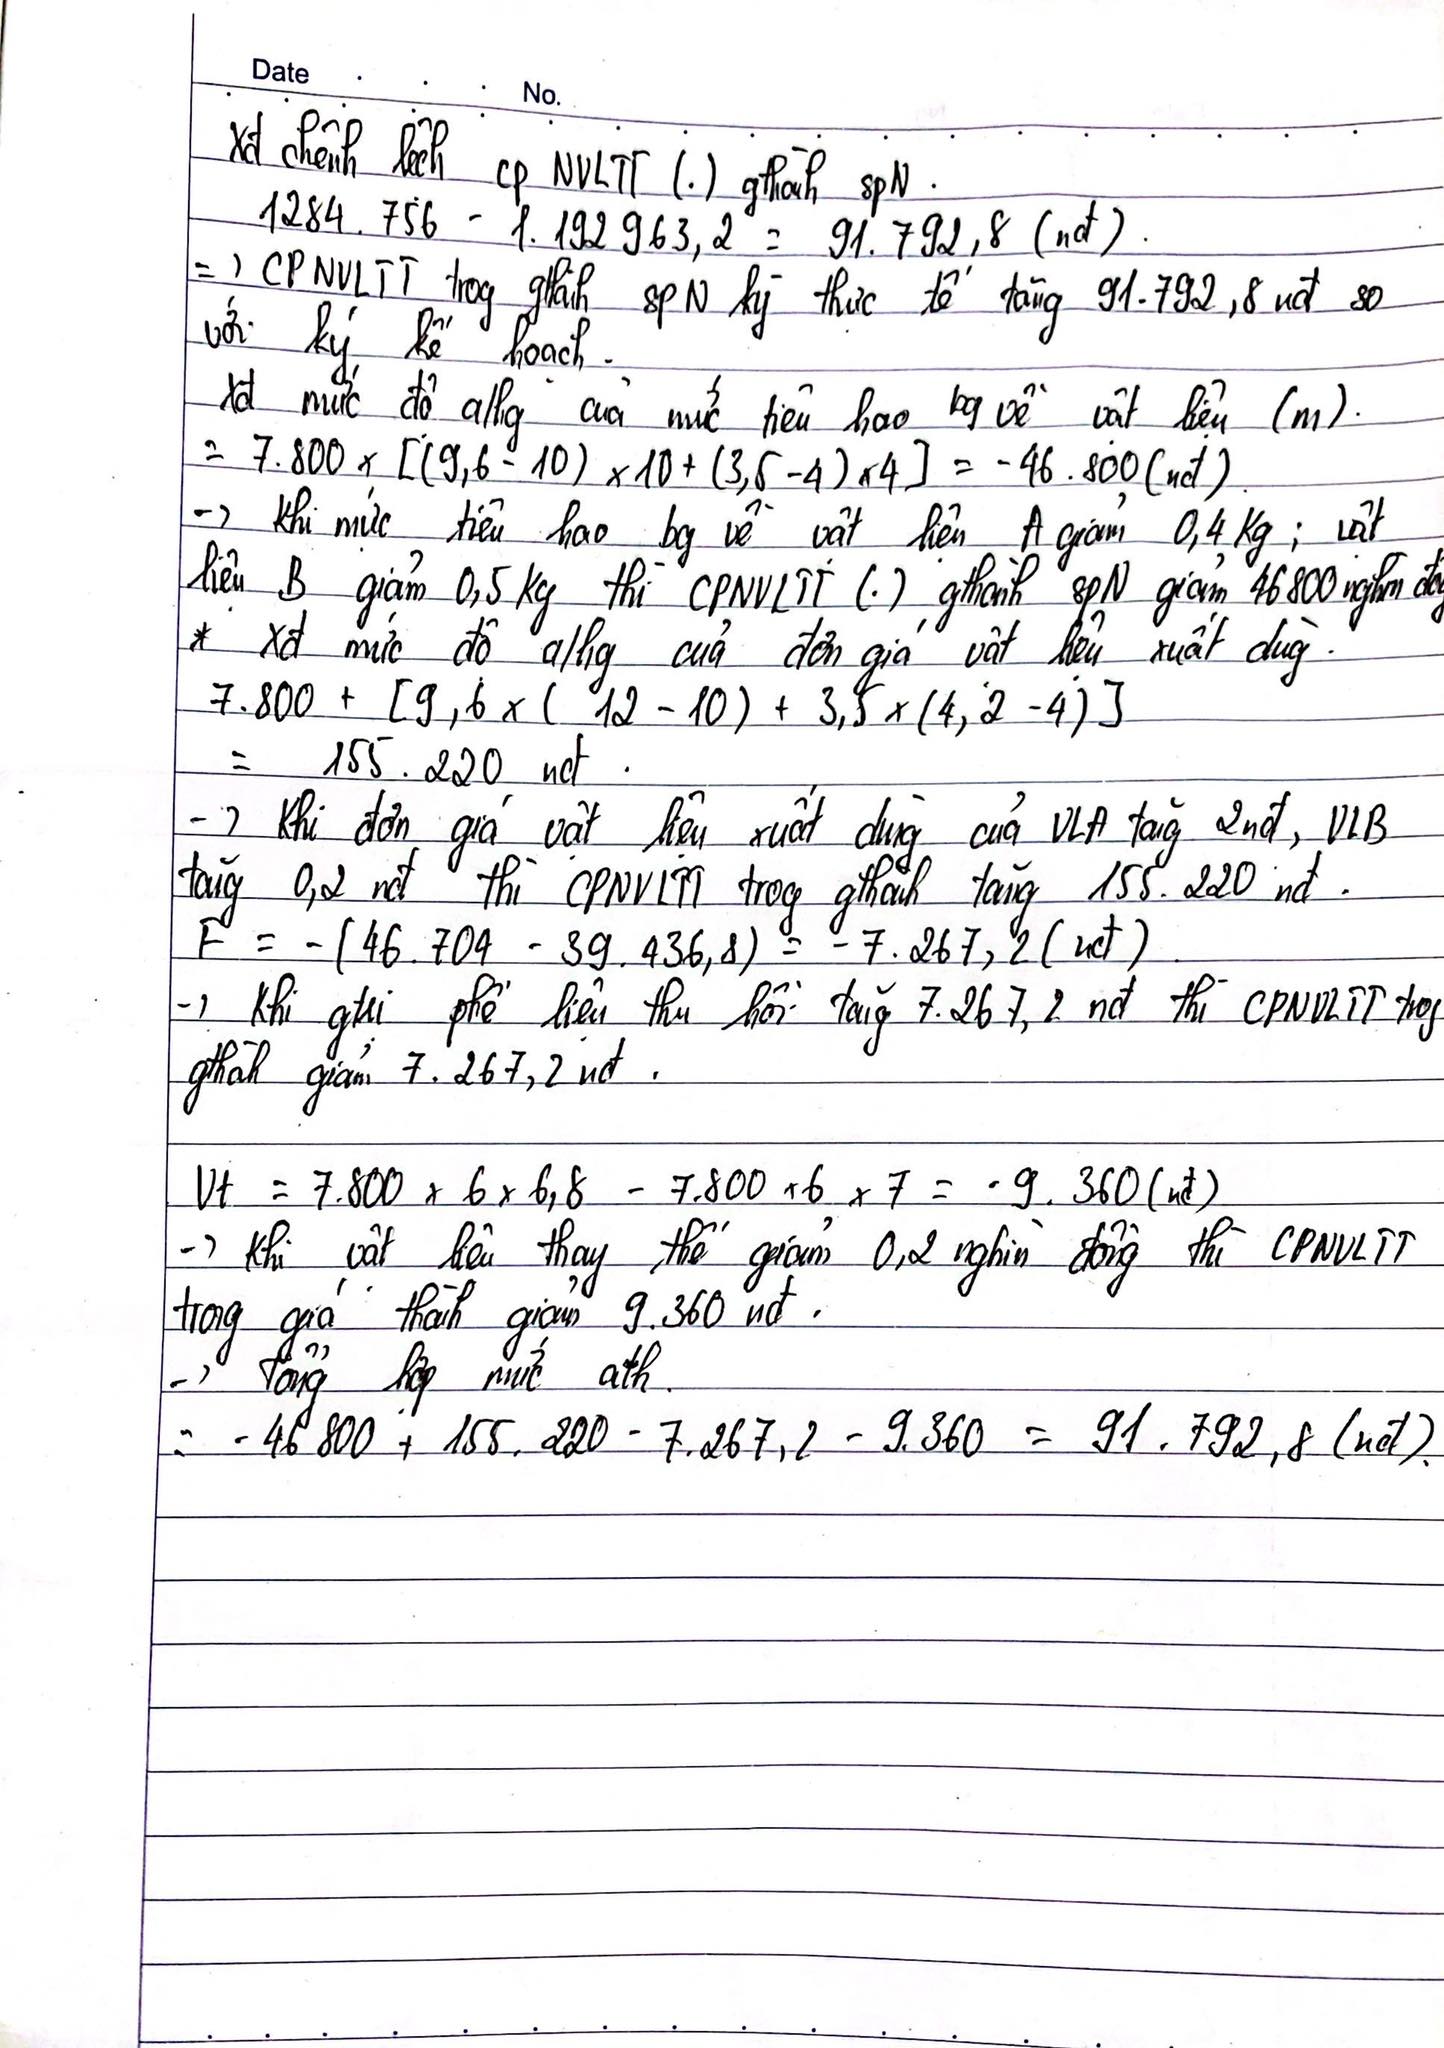 Date
No.
Xđ chênh lệch cp NVLTT (.) gthành spN.
1284.756 - 1.192 963,2 = 91.792,8 (nđ).
=> CPNVLTT trog gthành spN kỳ thực tế tăng 91.792,8 nđ so
với kỳ kế hoạch.
Xđ mức độ a/hg của mức tiêu hao bq về vật liệu (m).
= 7.800 x [(9,6 - 10) x 10 + (3,5 - 4) x 4] = -46.800 (nđ)
-> Khi mức tiêu hao bq về vật liệu A giảm 0,4 Kg; vật
liệu B giảm 0,5 Kg thì CPNVLTT (.) gthành spN giảm 46800 nghìn đồg
* Xđ mức độ a/hg của đơn giá vật liệu xuất dùg.
7.800 + [9,6 x ( 12 - 10) + 3,5 x (4,2 - 4)]
= 155.220 nđ.
-> Khi đơn giá vật liệu xuất dùng của VLA tăg 2nđ, VLB
tăg 0,2 nđ thì CPNVLTT trog gthành tăng 155.220 nđ.
F = -(46.704 - 39.436,8) = -7.267,2 (nđ)
-> Khi gtrị phế liệu thu hồi tăg 7.267,2 nđ thì CPNVLTT trog
gthàh giảm 7.267,2 nđ.
Vt = 7.800 x 6 x 6,8 - 7.800 x 6 x 7 = -9.360 (nđ)
-> Khi vật liệu thay thế giảm 0,2 nghìn đồg thì CPNVLTT
trong giá thành giảm 9.360 nđ.
-> Tổng hợp mức ath.
= -46 800 + 155.220 - 7.267,2 - 9.360 = 91.792,8 (nđ).